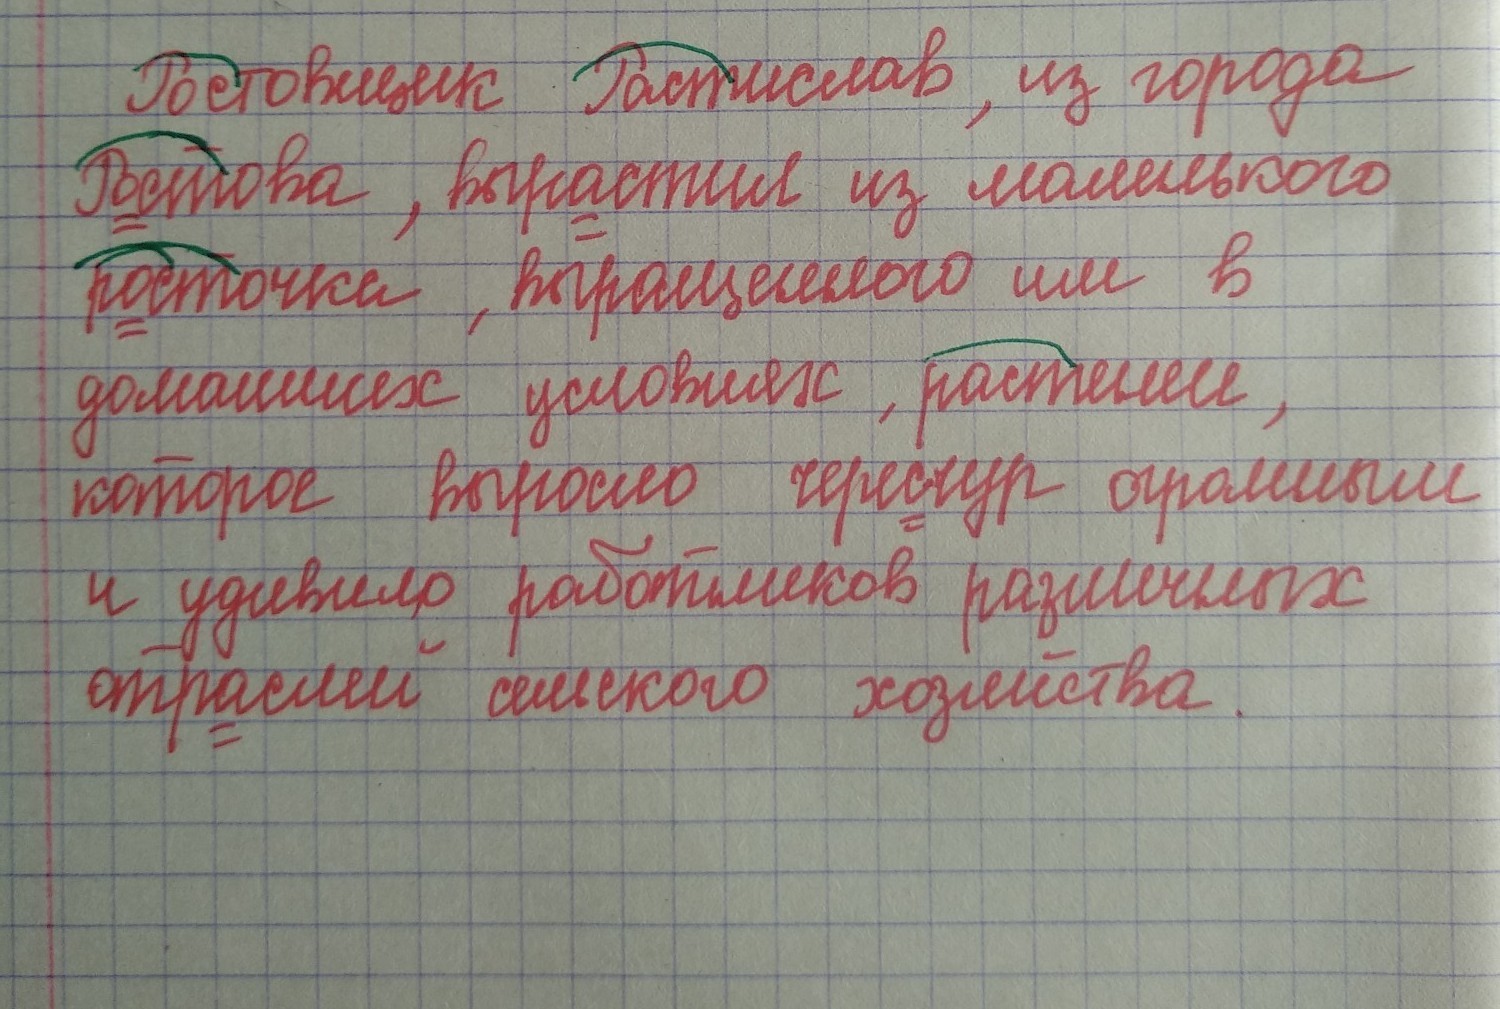 Ростовщик Ростислав, из города
Ростова, вырастил из маленького
росточка, выращенного им в
домашних условиях, растение,
которое выросло чересчур огромным
и удивило работников различных
отраслей сельского хозяйства.